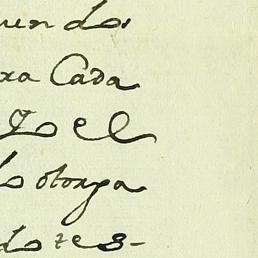 uen do
xa Cada
el
lo otorga
dores-